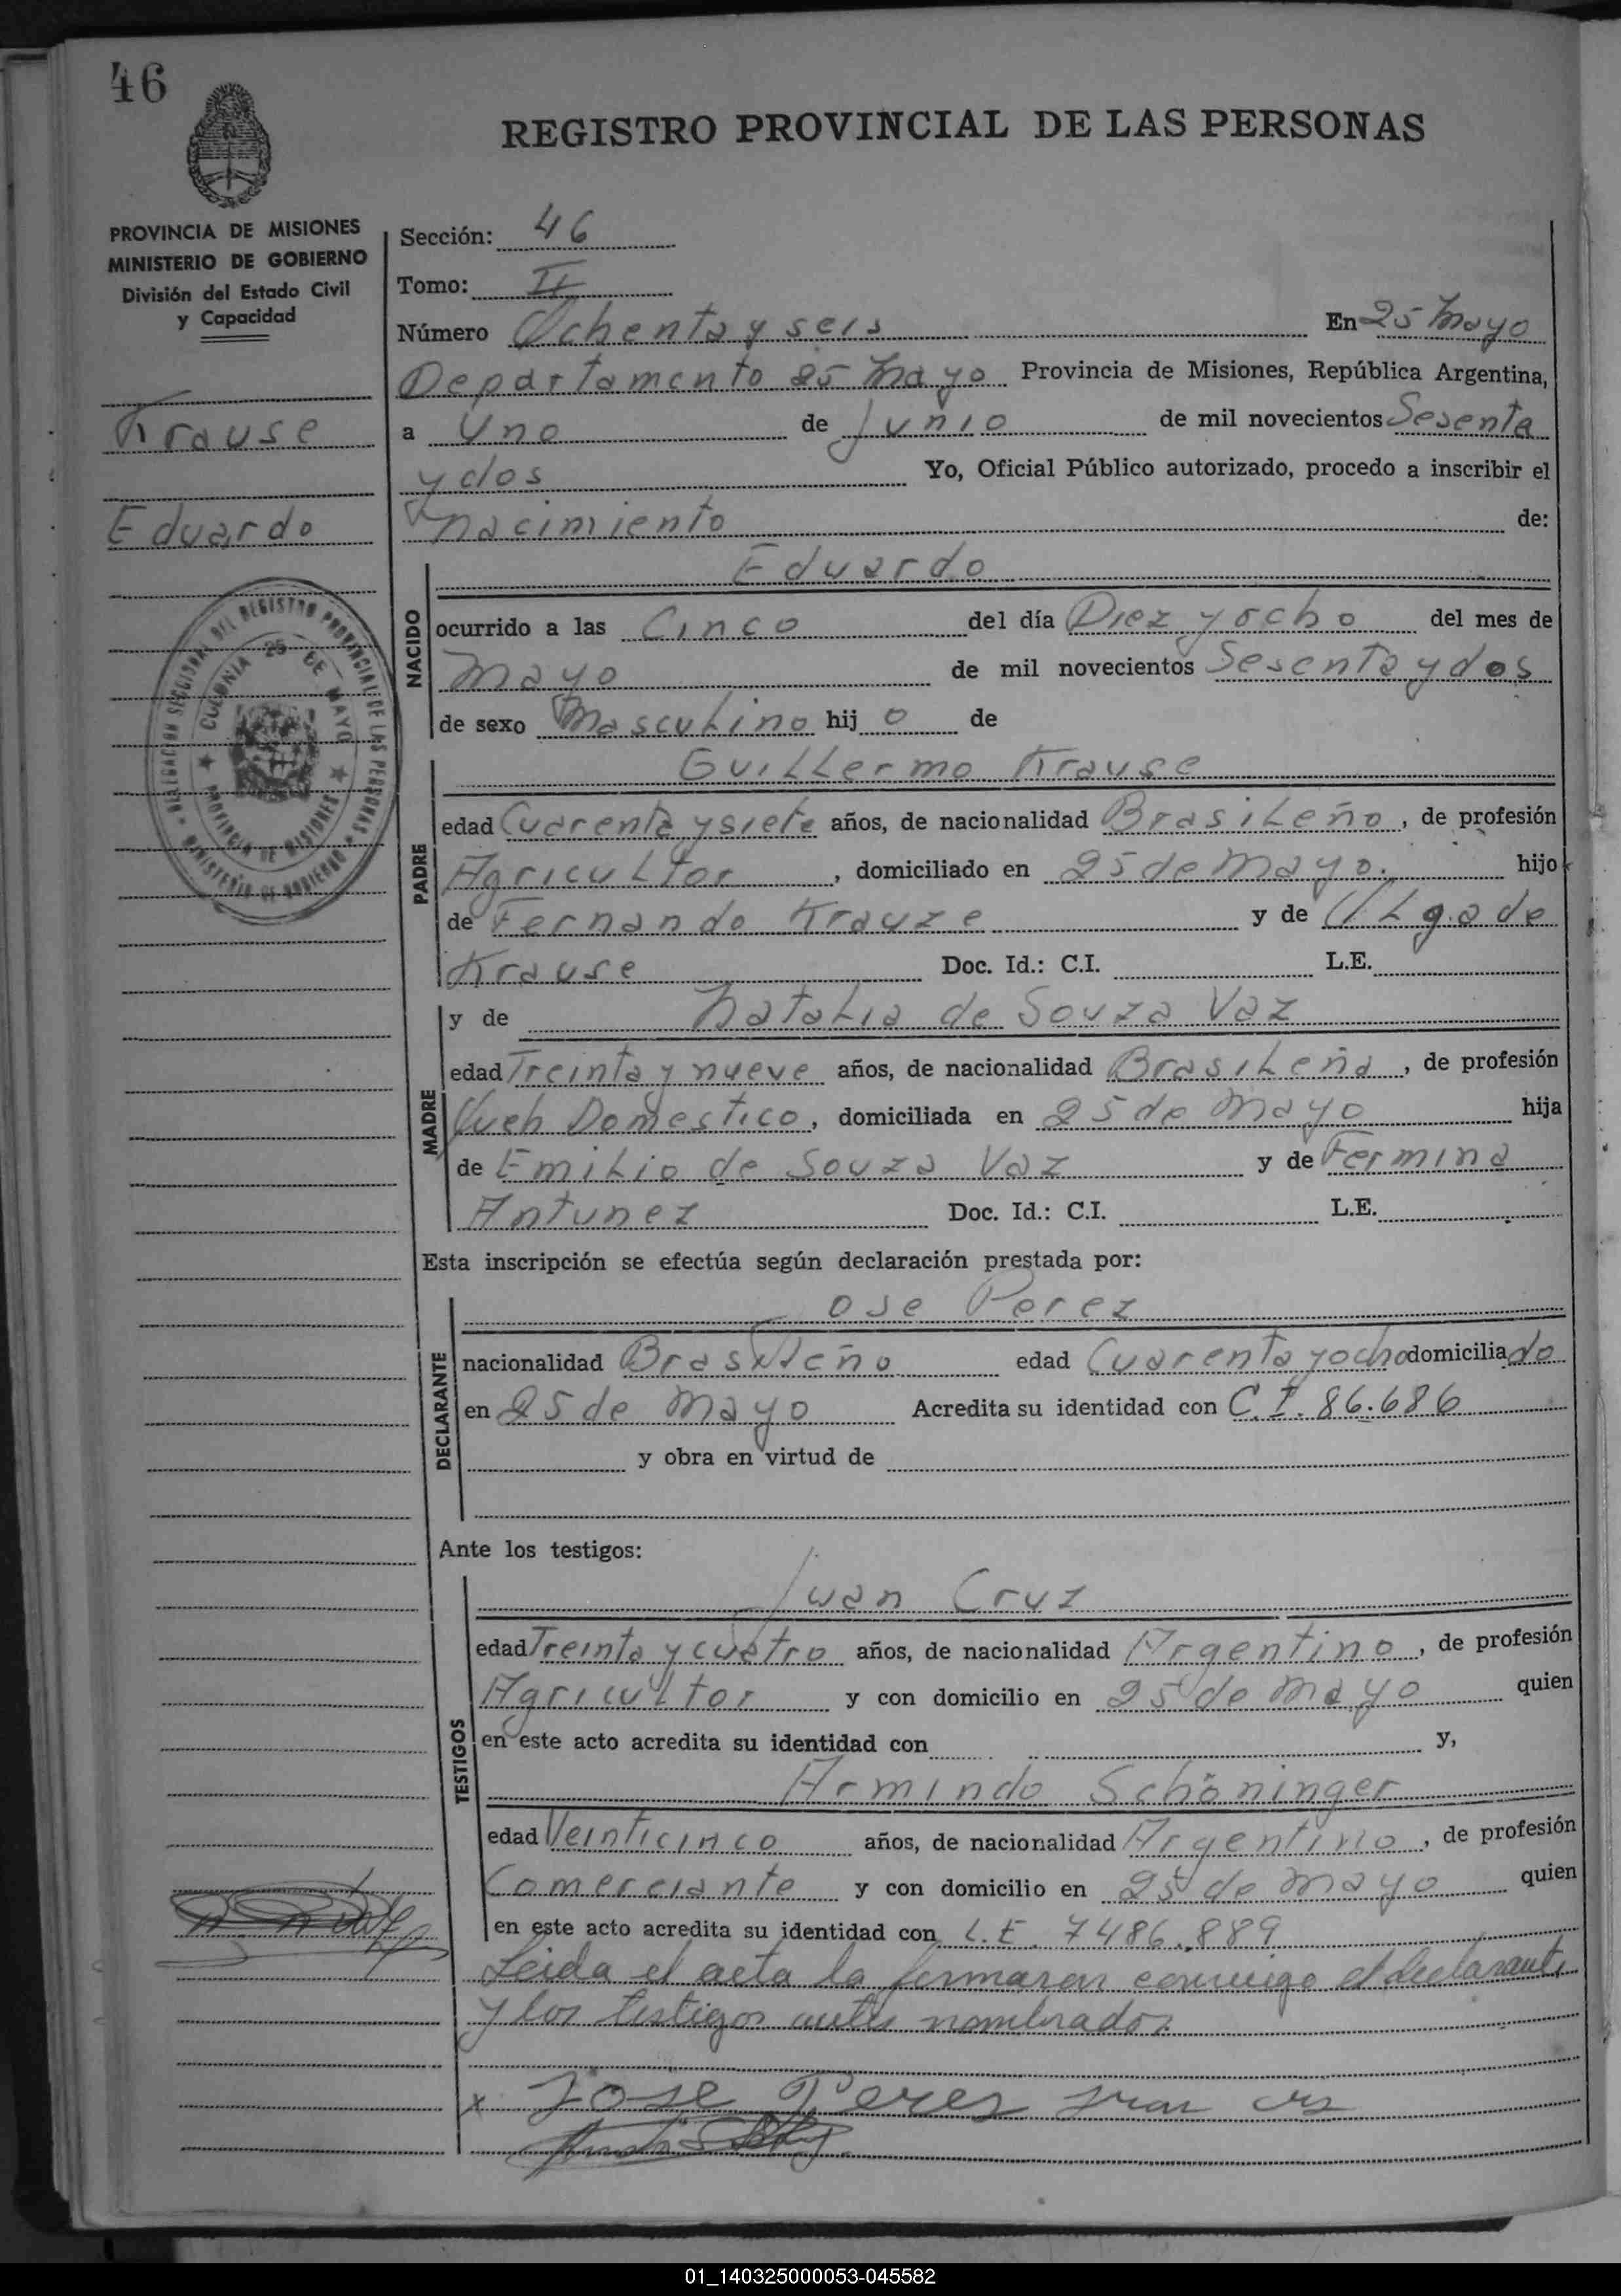 46
REGISTRO PROVINCIAL DE LAS PERSONAS
PROVINCIA DE MISIONES
MINISTERIO DE GOBIERNO
División del Estado Civil
y Capacidad
Krause
Eduardo
DELEGACION SECCIONAL DEL REGISTRO PROVINCIAL DE LAS PERSONAS
COLONIA 25 DE MAYO
PROVINCIA DE MISIONES
MINISTERIO DE GOBIERNO
Sección: 46
Tomo: II
Número Ochenta y seis En 25 Mayo
Departamento 25 Mayo Provincia de Misiones, República Argentina,
a Uno de Junio de mil novecientos Sesenta
y dos Yo, Oficial Público autorizado, procedo a inscribir el
nacimiento de:
NACIDO
Eduardo
ocurrido a las Cinco del día Diez y ocho del mes de
Mayo de mil novecientos Sesenta y dos
de sexo Masculino hij o de
PADRE
Guillermo Krause
edad Cuarenta y siete años, de nacionalidad Brasileño, de profesión
Agricultor, domiciliado en 25 de Mayo. hijo
de Fernando Krauze y de Olga de
Krause Doc. Id.: C.I. L.E.
MADRE
y de Natalia de Souza Vaz
edad Treinta y nueve años, de nacionalidad Brasileña, de profesión
Queh Domestico, domiciliada en 25 de Mayo hija
de Emilio de Souza Vaz y de Fermina
Antunez Doc. Id.: C.I. L.E.
Esta inscripción se efectúa según declaración prestada por:
DECLARANTE
Jose Perez
nacionalidad Brasileño edad Cuarenta y ocho domiciliado
en 25 de Mayo Acredita su identidad con C.I. 86.686
y obra en virtud de
Ante los testigos:
TESTIGOS
Juan Cruz
edad Treinta y cuatro años, de nacionalidad Argentino, de profesión
Agricultor y con domicilio en 25 de Mayo quien
en este acto acredita su identidad con y,
Armindo Schöninger
edad Veinticinco años, de nacionalidad Argentino, de profesión
Comerciante y con domicilio en 25 de Mayo quien
en este acto acredita su identidad con L.E. 7486.889
Leida el acta la firmaron conmigo el declarante
y los testigos antes nombrados.
x Jose Peres Juan Crz
01_140325000053-045582